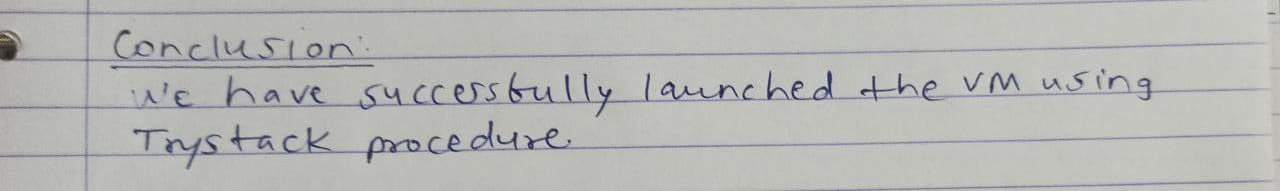 Conclusion:
We have successfully launched the VM using
Trystack procedure.